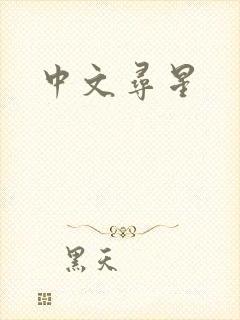 中文尋星
黑天